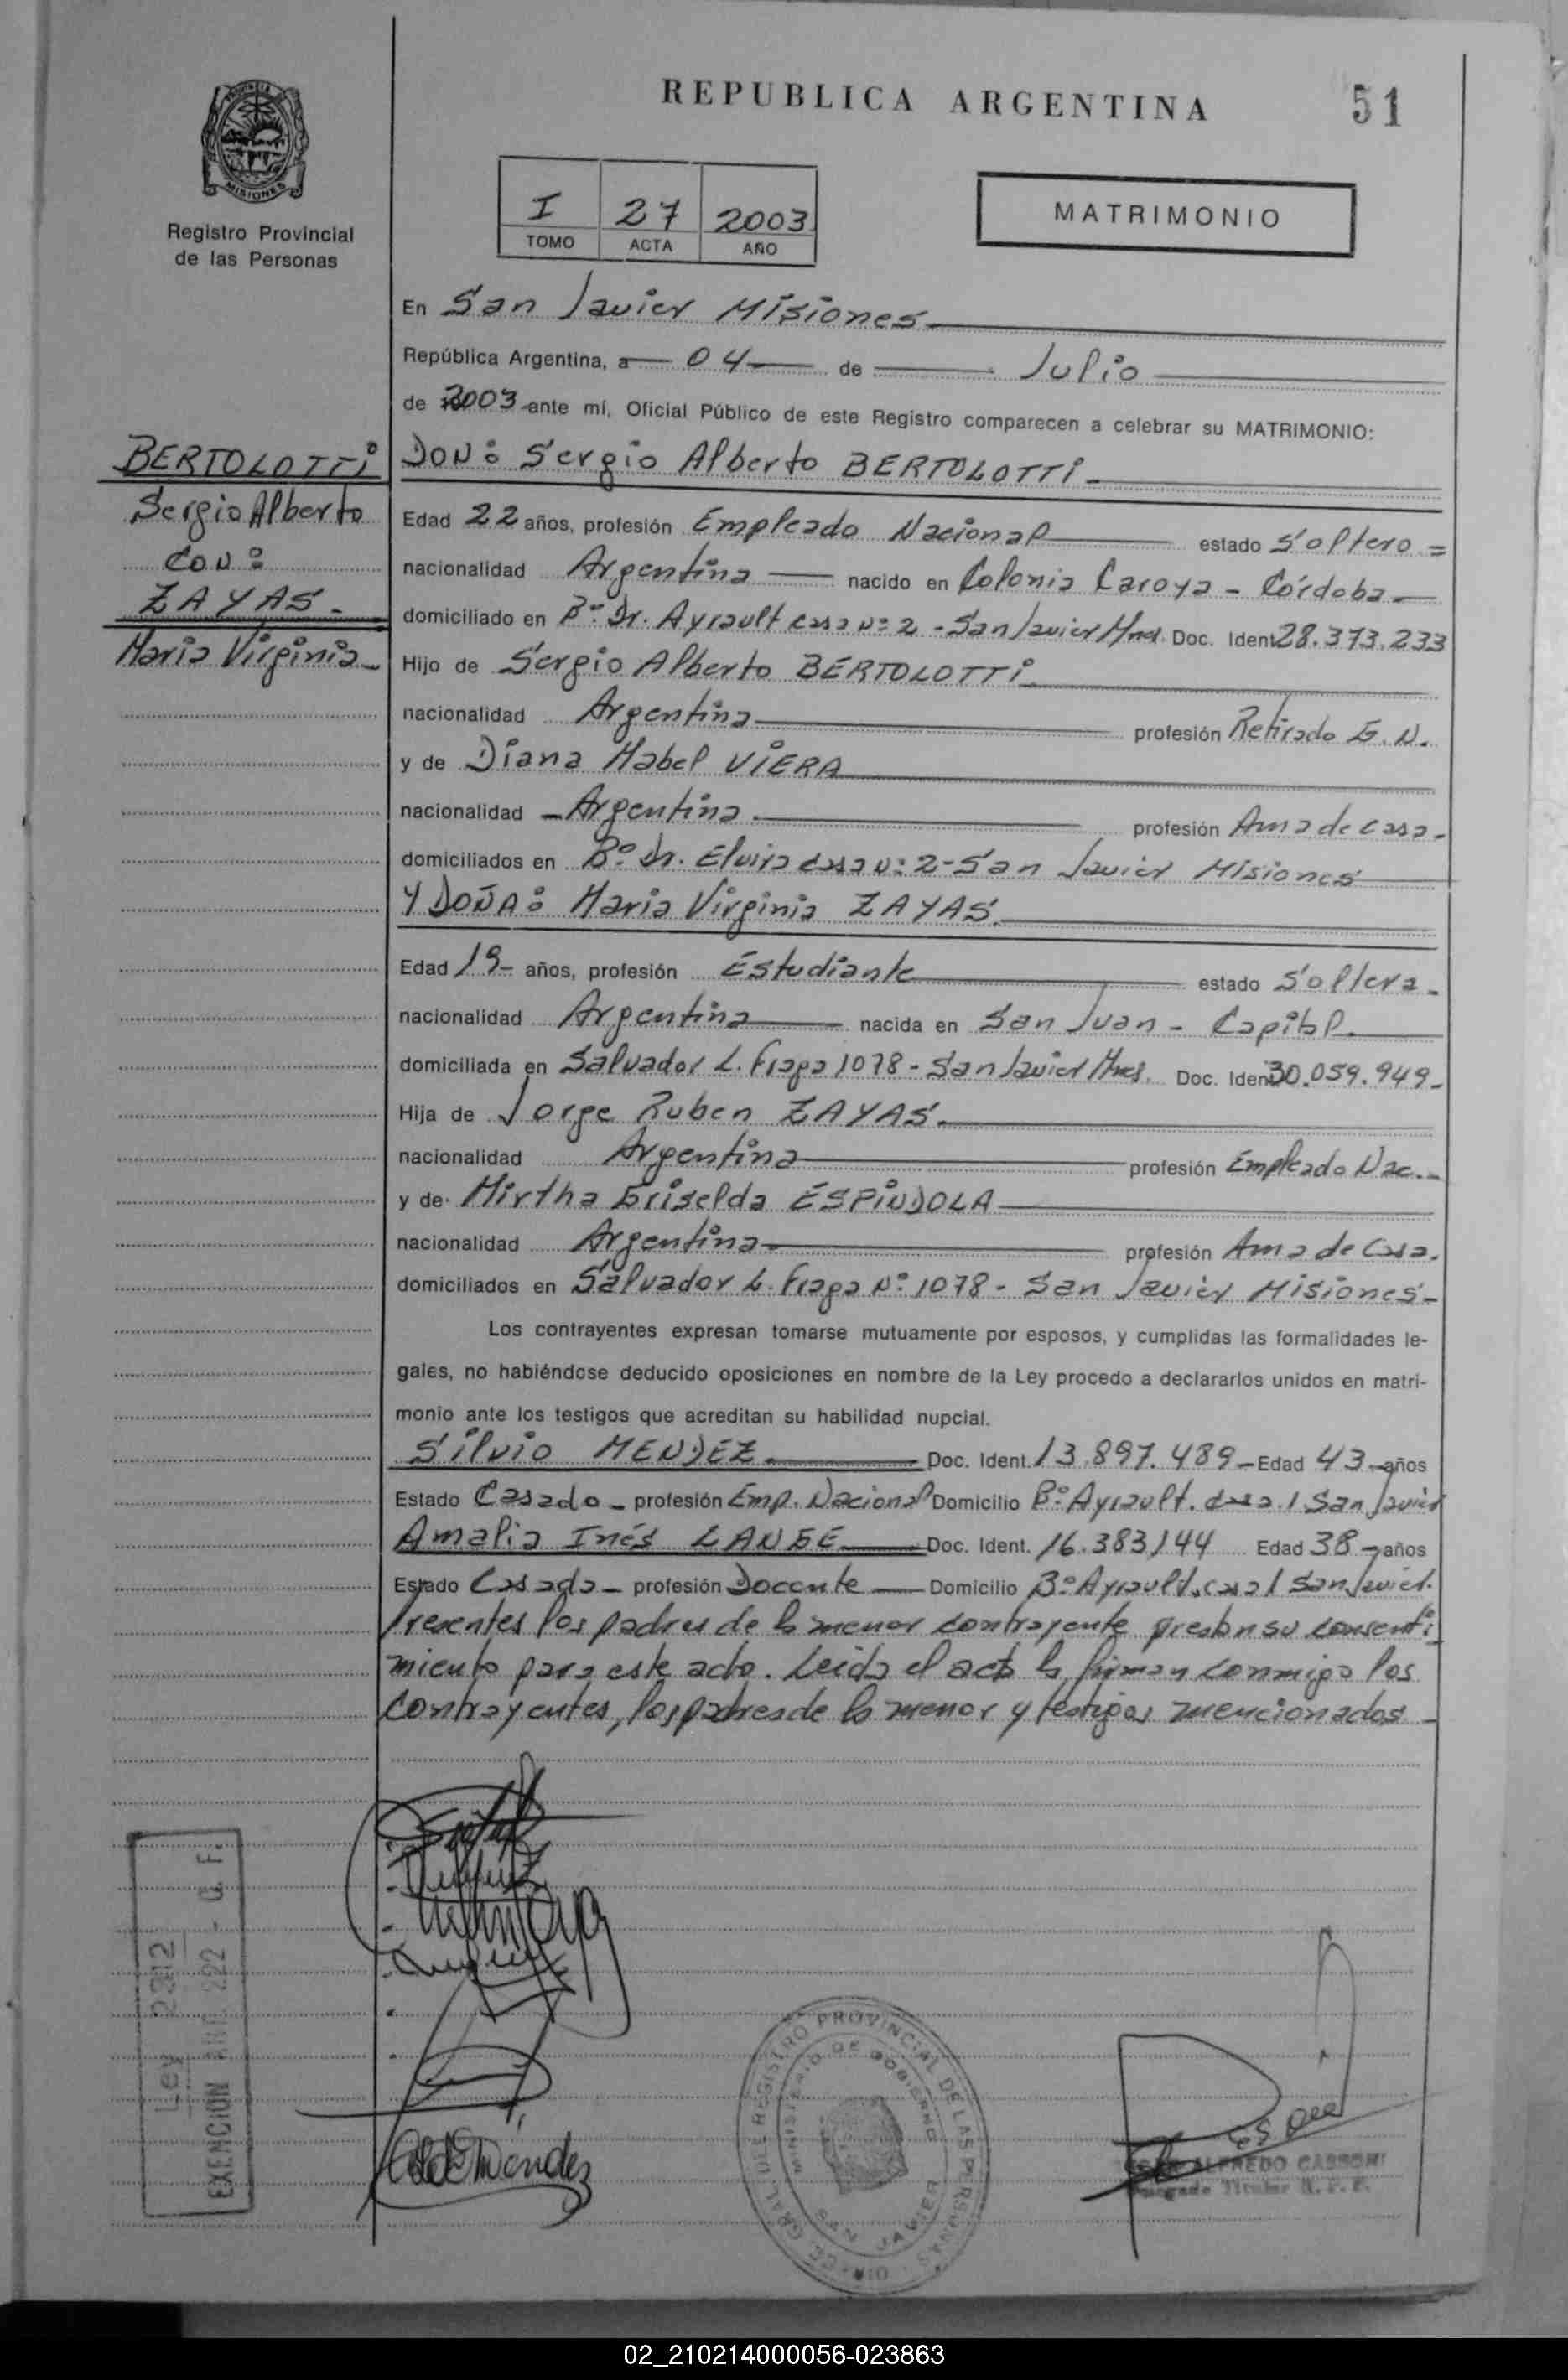 REPUBLICA ARGENTINA
51
MISIONES
Registro Provincial
de las Personas
I 27 2003
TOMO ACTA AÑO
MATRIMONIO
En San Javier Misiones
República Argentina, a 04 de Julio
de 2003 ante mí, Oficial Público de este Registro comparecen a celebrar su MATRIMONIO:
BERTOLOTTI
Sergio Alberto
CON:
ZAYAS.-
Maria Virginia
DON: Sergio Alberto BERTOLOTTI
Edad 22 años, profesión Empleado Nacional estado Soltero =
nacionalidad Argentina nacido en Colonia Caroya - Córdoba
domiciliado en Bº Dr. Ayrault casa Nº 2 - San Javier Mnes. Doc. Ident. 28.373.233
Hijo de Sergio Alberto BERTOLOTTI
nacionalidad Argentina profesión Retirado G.N.
y de Diana Mabel VIERA
nacionalidad Argentina profesión Ama de casa.
domiciliados en Bº Dr. casa Nº 2 - San Javier Misiones
Y DOÑA: Maria Virginia ZAYAS.
Edad 19 años, profesión Estudiante estado Soltera
nacionalidad Argentina nacida en San Juan - Capital.
domiciliada en Salvador L. Fraga 1078 - San Javier Mnes. Doc. Ident. 30.059.949
Hija de Jorge Ruben ZAYAS.
nacionalidad Argentina profesión Empleado Nac.
y de Mirtha Griselda ESPINDOLA
nacionalidad Argentina profesión Ama de Casa.
domiciliados en Salvador L. Fraga Nº 1078 - San Javier Misiones
Los contrayentes expresan tomarse mutuamente por esposos, y cumplidas las formalidades le-
gales, no habiéndose deducido oposiciones en nombre de la Ley procedo a declararlos unidos en matri-
monio ante los testigos que acreditan su habilidad nupcial.
Silvio MENDEZ Doc. Ident. 13.897.489 Edad 43 años
Estado Casado profesión Emp. Nacional Domicilio Bº Ayrault. casa 1 San Javier
Amalia Inés LANGE Doc. Ident. 16.383.144 Edad 38 años
Estado Casada profesión Docente Domicilio Bº Ayrault. casa 1 San Javier.
Presentes los padres de la menor contrayente prestan su consenti
miento para este acto. Leida el acta la firman conmigo los
contrayentes, los padres de la menor y testigos mencionados
Ley 2312
EXENCION ART. 222 - C. F.
Mendez
DIRECC. GRAL. DEL REGISTRO PROVINCIAL DE LAS PERSONAS
MINISTERIO DE GOBIERNO
SAN JAVIER
ALFREDO CASSONI
Delegado Titular R. P. P.
02_210214000056-023863